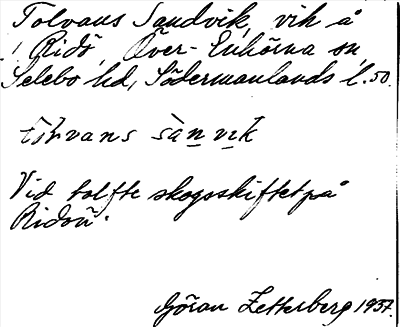 Tolvans Sandvik, vik å
Ridö, Över-Enhörna sn,
Selebo hd, Södermanlands l. 50.
tòlvans sànvik
Vid tolfte skogsskiftet på
Ridön.
Göran Zetterberg 1937.